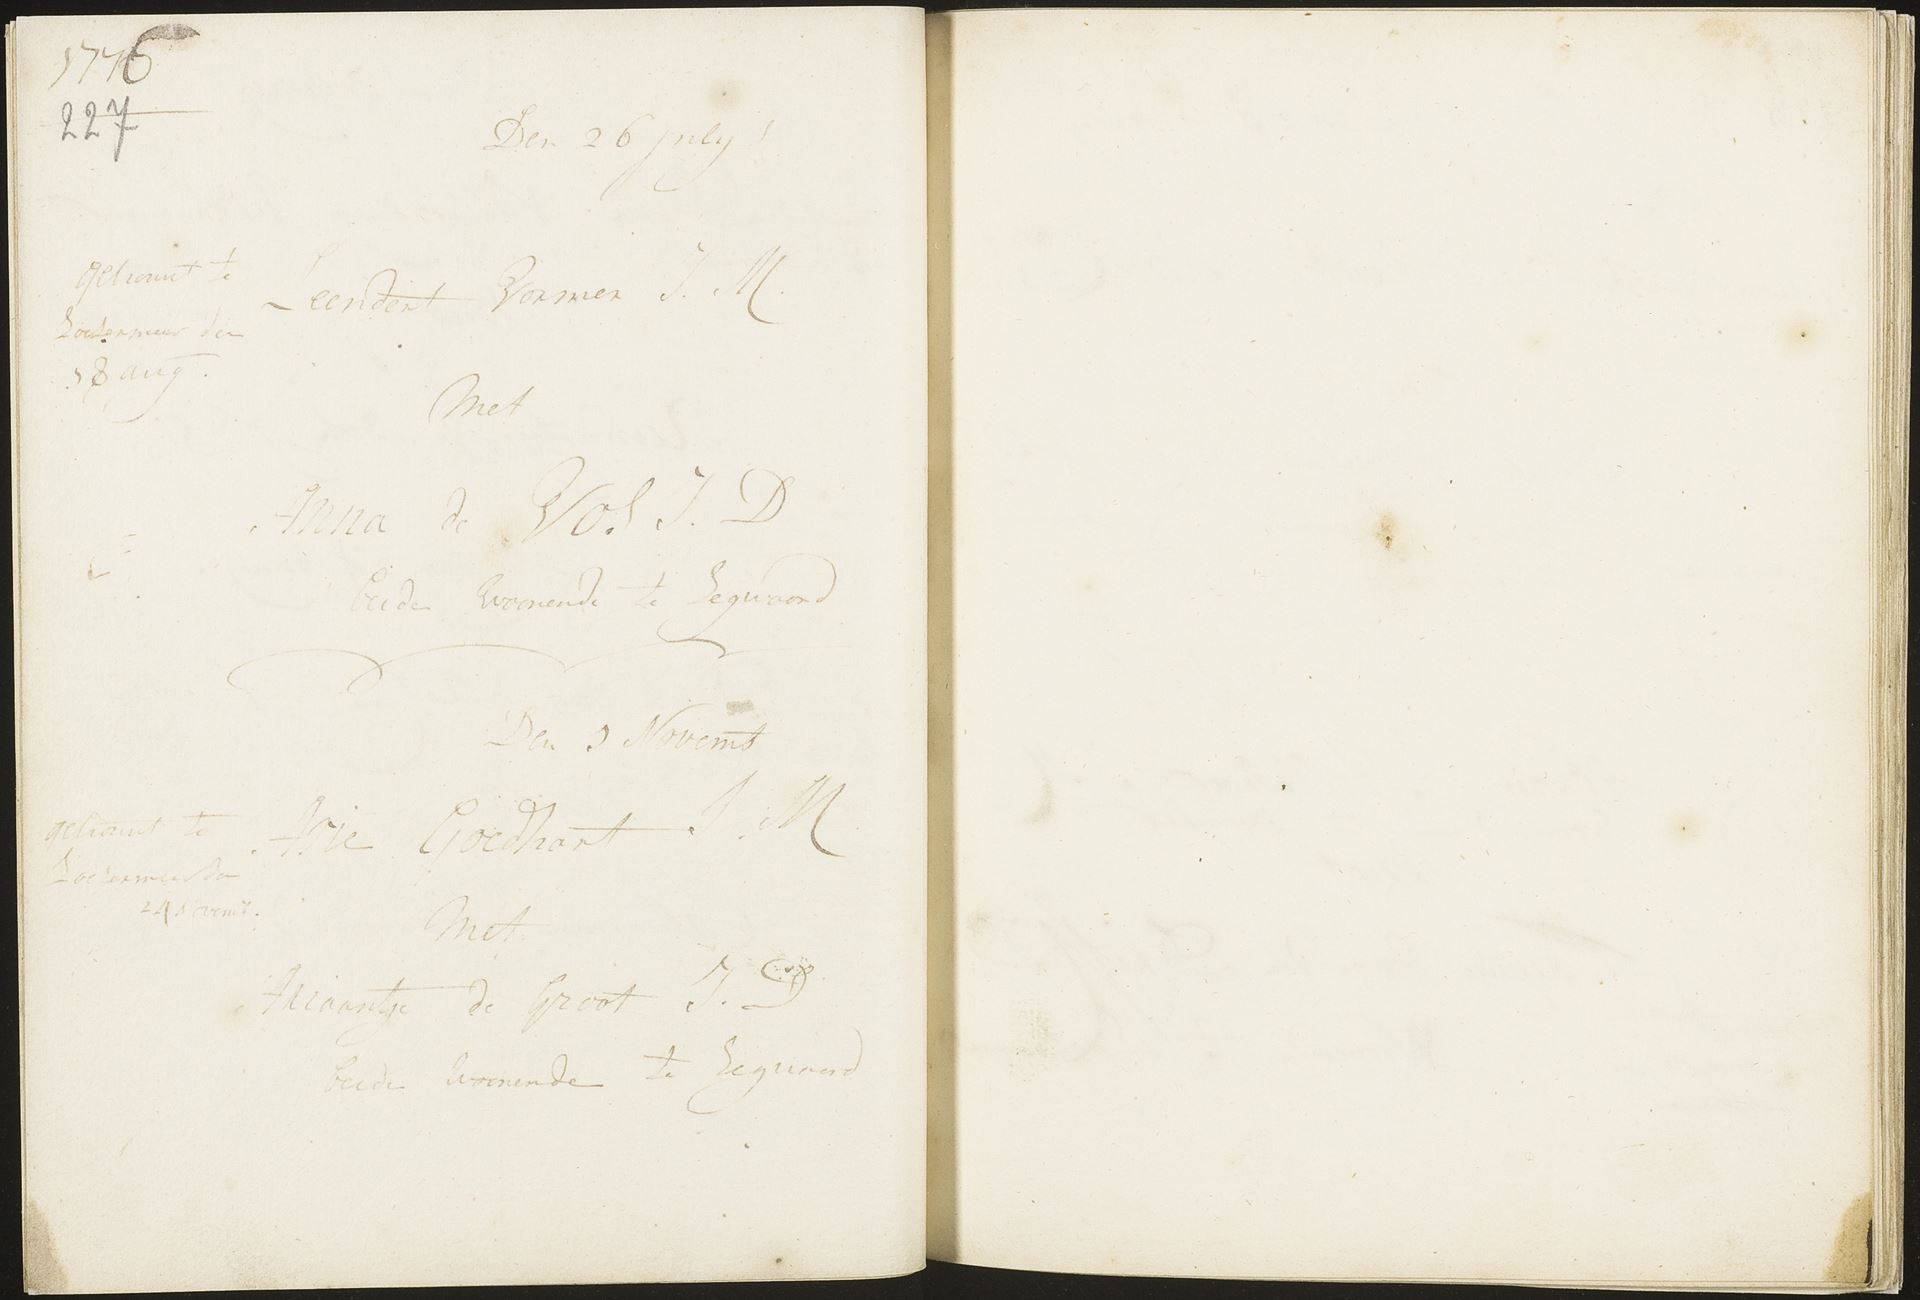 1776
227
Den 26 July
getrouwt te
Zoetermeer den
18 aug.
Leendert Vormer J. M.
Met
Anna de Vos J. D
beide woonende te Zegwaard
Den 1 Novemb
getrouwt te
Zoetermeer den
24 Novemb.
Arie Goedhart J. M
Met
Ariaantje de Groot J. D
beide woonende te Zegwaard